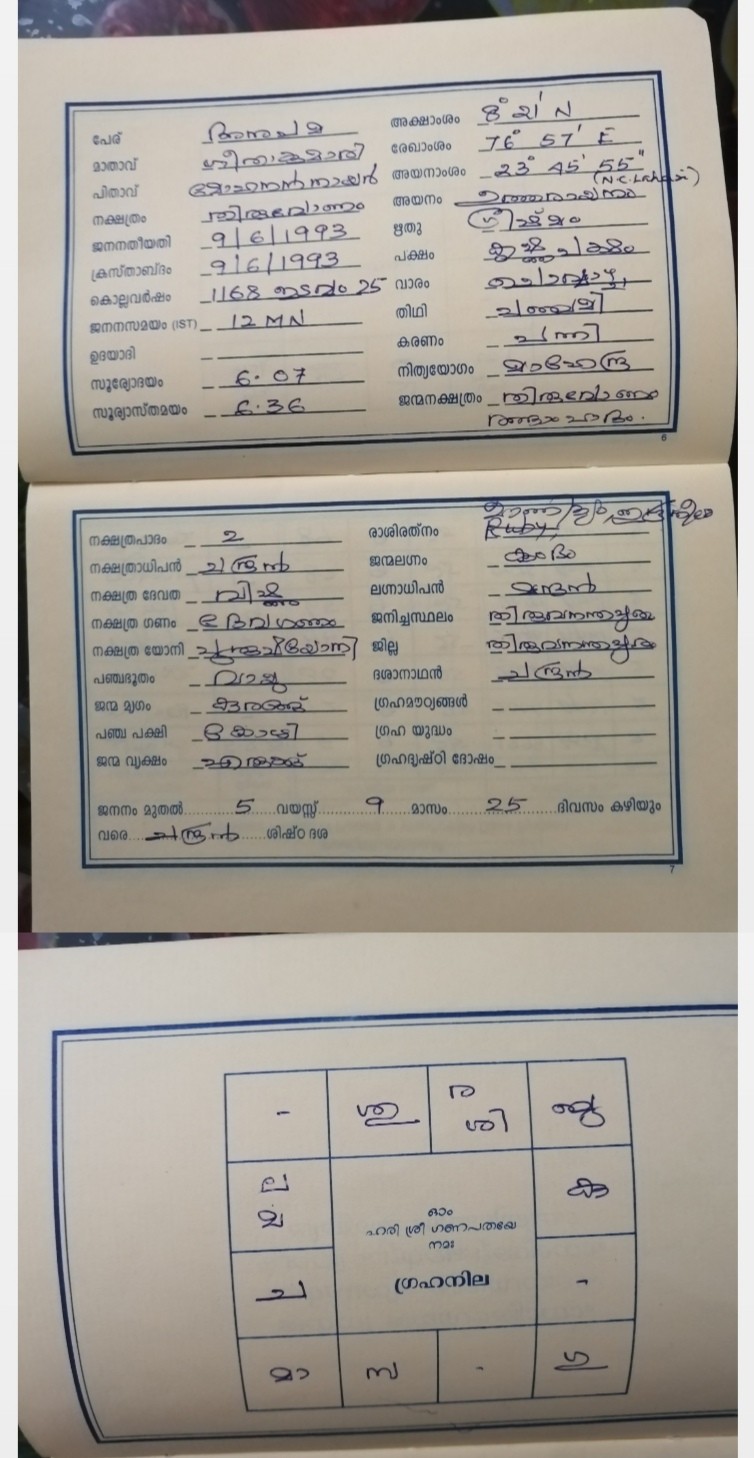 പേര് അനുപമ
മാതാവ് ഗീതാകുമാരി
പിതാവ് മോഹനൻ നായർ
നക്ഷത്രം തിരുവോണം
ജനനതീയതി 9/6/1993
ക്രിസ്താബ്ദം 9/6/1993
കൊല്ലവർഷം 1168 ഇടവം 25
ജനനസമയം (IST) 12 MN
ഉദയാദി
സൂര്യോദയം 6.07
സൂര്യാസ്തമയം 6.36
അക്ഷാംശം 8° 21' N
രേഖാംശം 76° 57' E
അയനാംശം 23° 45' 55"
(N.C. Lahari)
അയനം ഉത്തരായനം
ഋതു ഗ്രീഷ്മം
പക്ഷം കൃഷ്ണപക്ഷം
വാരം
തിഥി പഞ്ചമി
കരണം പന്നി
നിത്യയോഗം മാഹേന്ദ്ര
ജന്മനക്ഷത്രം തിരുവോണം
രണ്ടാം പാദം.
6
നക്ഷത്രപാദം 2
നക്ഷത്രാധിപൻ ചന്ദ്രൻ
നക്ഷത്ര ദേവത വിഷ്ണു
നക്ഷത്ര ഗണം ദേവഗണം
നക്ഷത്ര യോനി പുരുഷയോനി
പഞ്ചഭൂതം വായു
ജന്മ മൃഗം കുരങ്ങ്
പഞ്ച പക്ഷി കോഴി
ജന്മ വൃക്ഷം എരുക്ക്
രാശിരത്നം Ruby
ജന്മലഗ്നം കുംഭം
ലഗ്നാധിപൻ മന്ദൻ
ജനിച്ചസ്ഥലം തിരുവനന്തപുരം
ജില്ല തിരുവനന്തപുരം
ദശാനാഥൻ ചന്ദ്രൻ
ഗ്രഹമൗഢ്യങ്ങൾ
ഗ്രഹ യുദ്ധം
ഗ്രഹദൃഷ്ഠി ദോഷം
ജനനം മുതൽ 5 വയസ്സ് 9 മാസം 25 ദിവസം കഴിയും
വരെ ചന്ദ്രൻ ശിഷ്ഠ ദശ
7
- ശു ര ശി
ല മ ക
ഓം
ഹരി ശ്രീ ഗണപതയേ
നമഃ
ഗ്രഹനില
ച -
മാ സ - ഗു